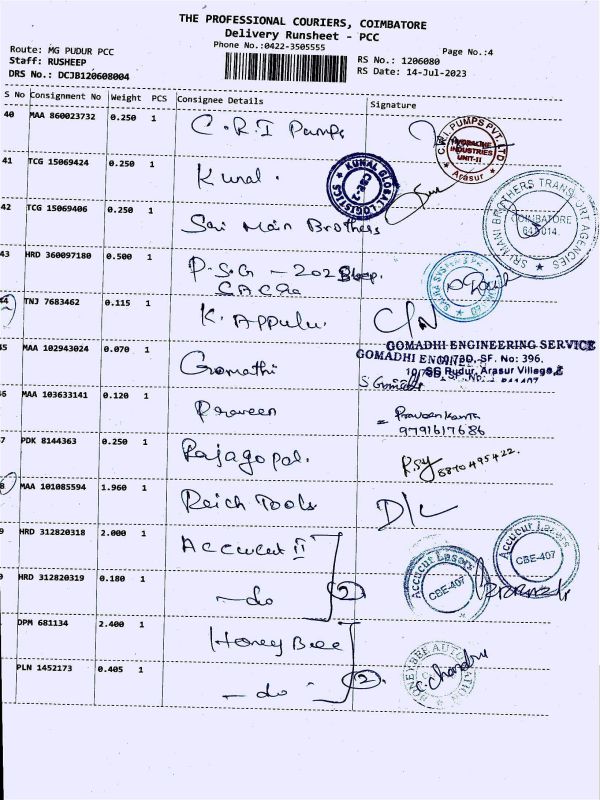 THE PROFESSIONAL COURIERS, COIMBATORE
Delivery Runsheet - PCC
Phone No.:0422-3505555
Page No.:4
Route: MG PUDUR PCC
Staff: RUSHEEP
DRS No.: DCJB120608004
RS No.: 1206080
RS Date: 14-Jul-2023
S No Consignment No Weight PCS Consignee Details Signature
40 MAA 860023732 0.250 1 C.R.I Pumps
C.R.I. PUMPS PVT. LTD
INDUSTRIES
UNIT-II
Arasur
41 TCG 15069424 0.250 1 Kunal.
KUNAL GLOBAL LOGISTICS
CBE-2
42 TCG 15069406 0.250 1 Sai Main Brothers
SRI MANI BROTHERS TRANSPORT AGENCIES
COIMBATORE
641 014.
43 HRD 360097180 0.500 1 P.S.G - 202
44 TNJ 7683462 0.115 1 K. Appulu. C/N
45 MAA 102943024 0.070 1 Gomathi
GOMADHI ENGINEERING SERVICE
GOMADHI
SF. No: 396.
Pudur, Arasur Village
6 MAA 103633141 0.120 1 Praveen
9791617686
7 PDK 8144363 0.250 1 Rajagopal.
8870495422.
8 MAA 101085594 1.960 1 Reich Tools D/L
9 HRD 312820318 2.000 1 Accucut II
Accucut Lasers
CBE-407
Accucut Lasers
CBE-407
HRD 312820319 0.180 1 - do 2
DPM 681134 2.400 1 Honey Bee
HONEY BEE AUTOMATION
C. Chandru
PLN 1452173 0.405 1 - do " 2.